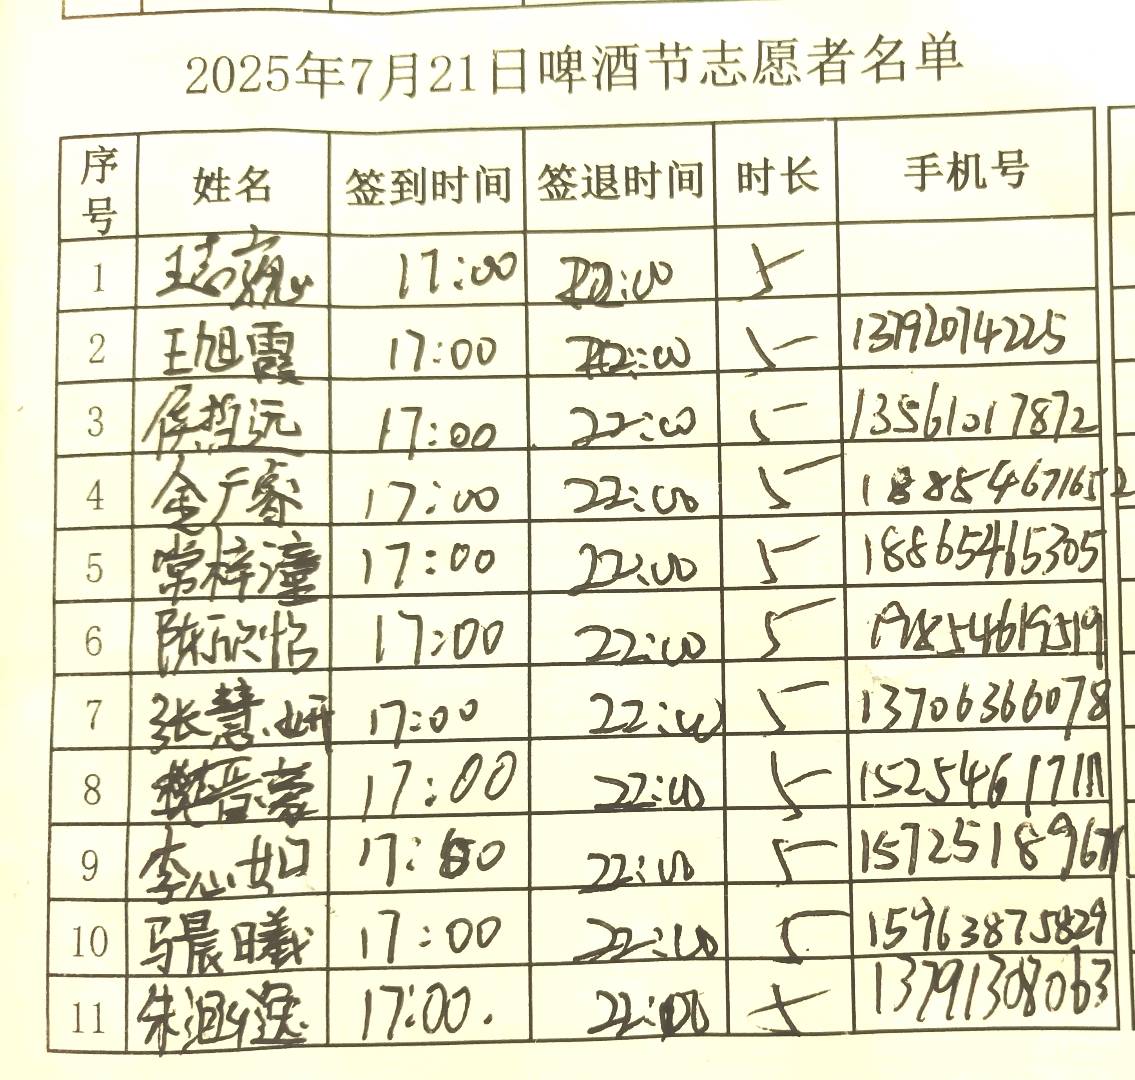 2025年7月21日啤酒节志愿者名单
序号 姓名 签到时间 签退时间 时长 手机号
1 王志巍 17:00 22:00 5
2 王旭霞 17:00 22:00 5 13792074225
3 侯哲远 17:00 22:00 5 13561017872
4 金广睿 17:00 22:00 5 18854671652
5 常梓潼 17:00 22:00 5 18865465305
6 陈欣怡 17:00 22:00 5 19854619519
7 张慧妍 17:00 22:00 5 13706366078
8 魏晋豪 17:00 22:00 5 15254617111
9 李心如 17:00 22:00 5
10 马晨曦 17:00 22:00 5 15963875829
11 朱 逸 17:00. 22:00 5 13791308063